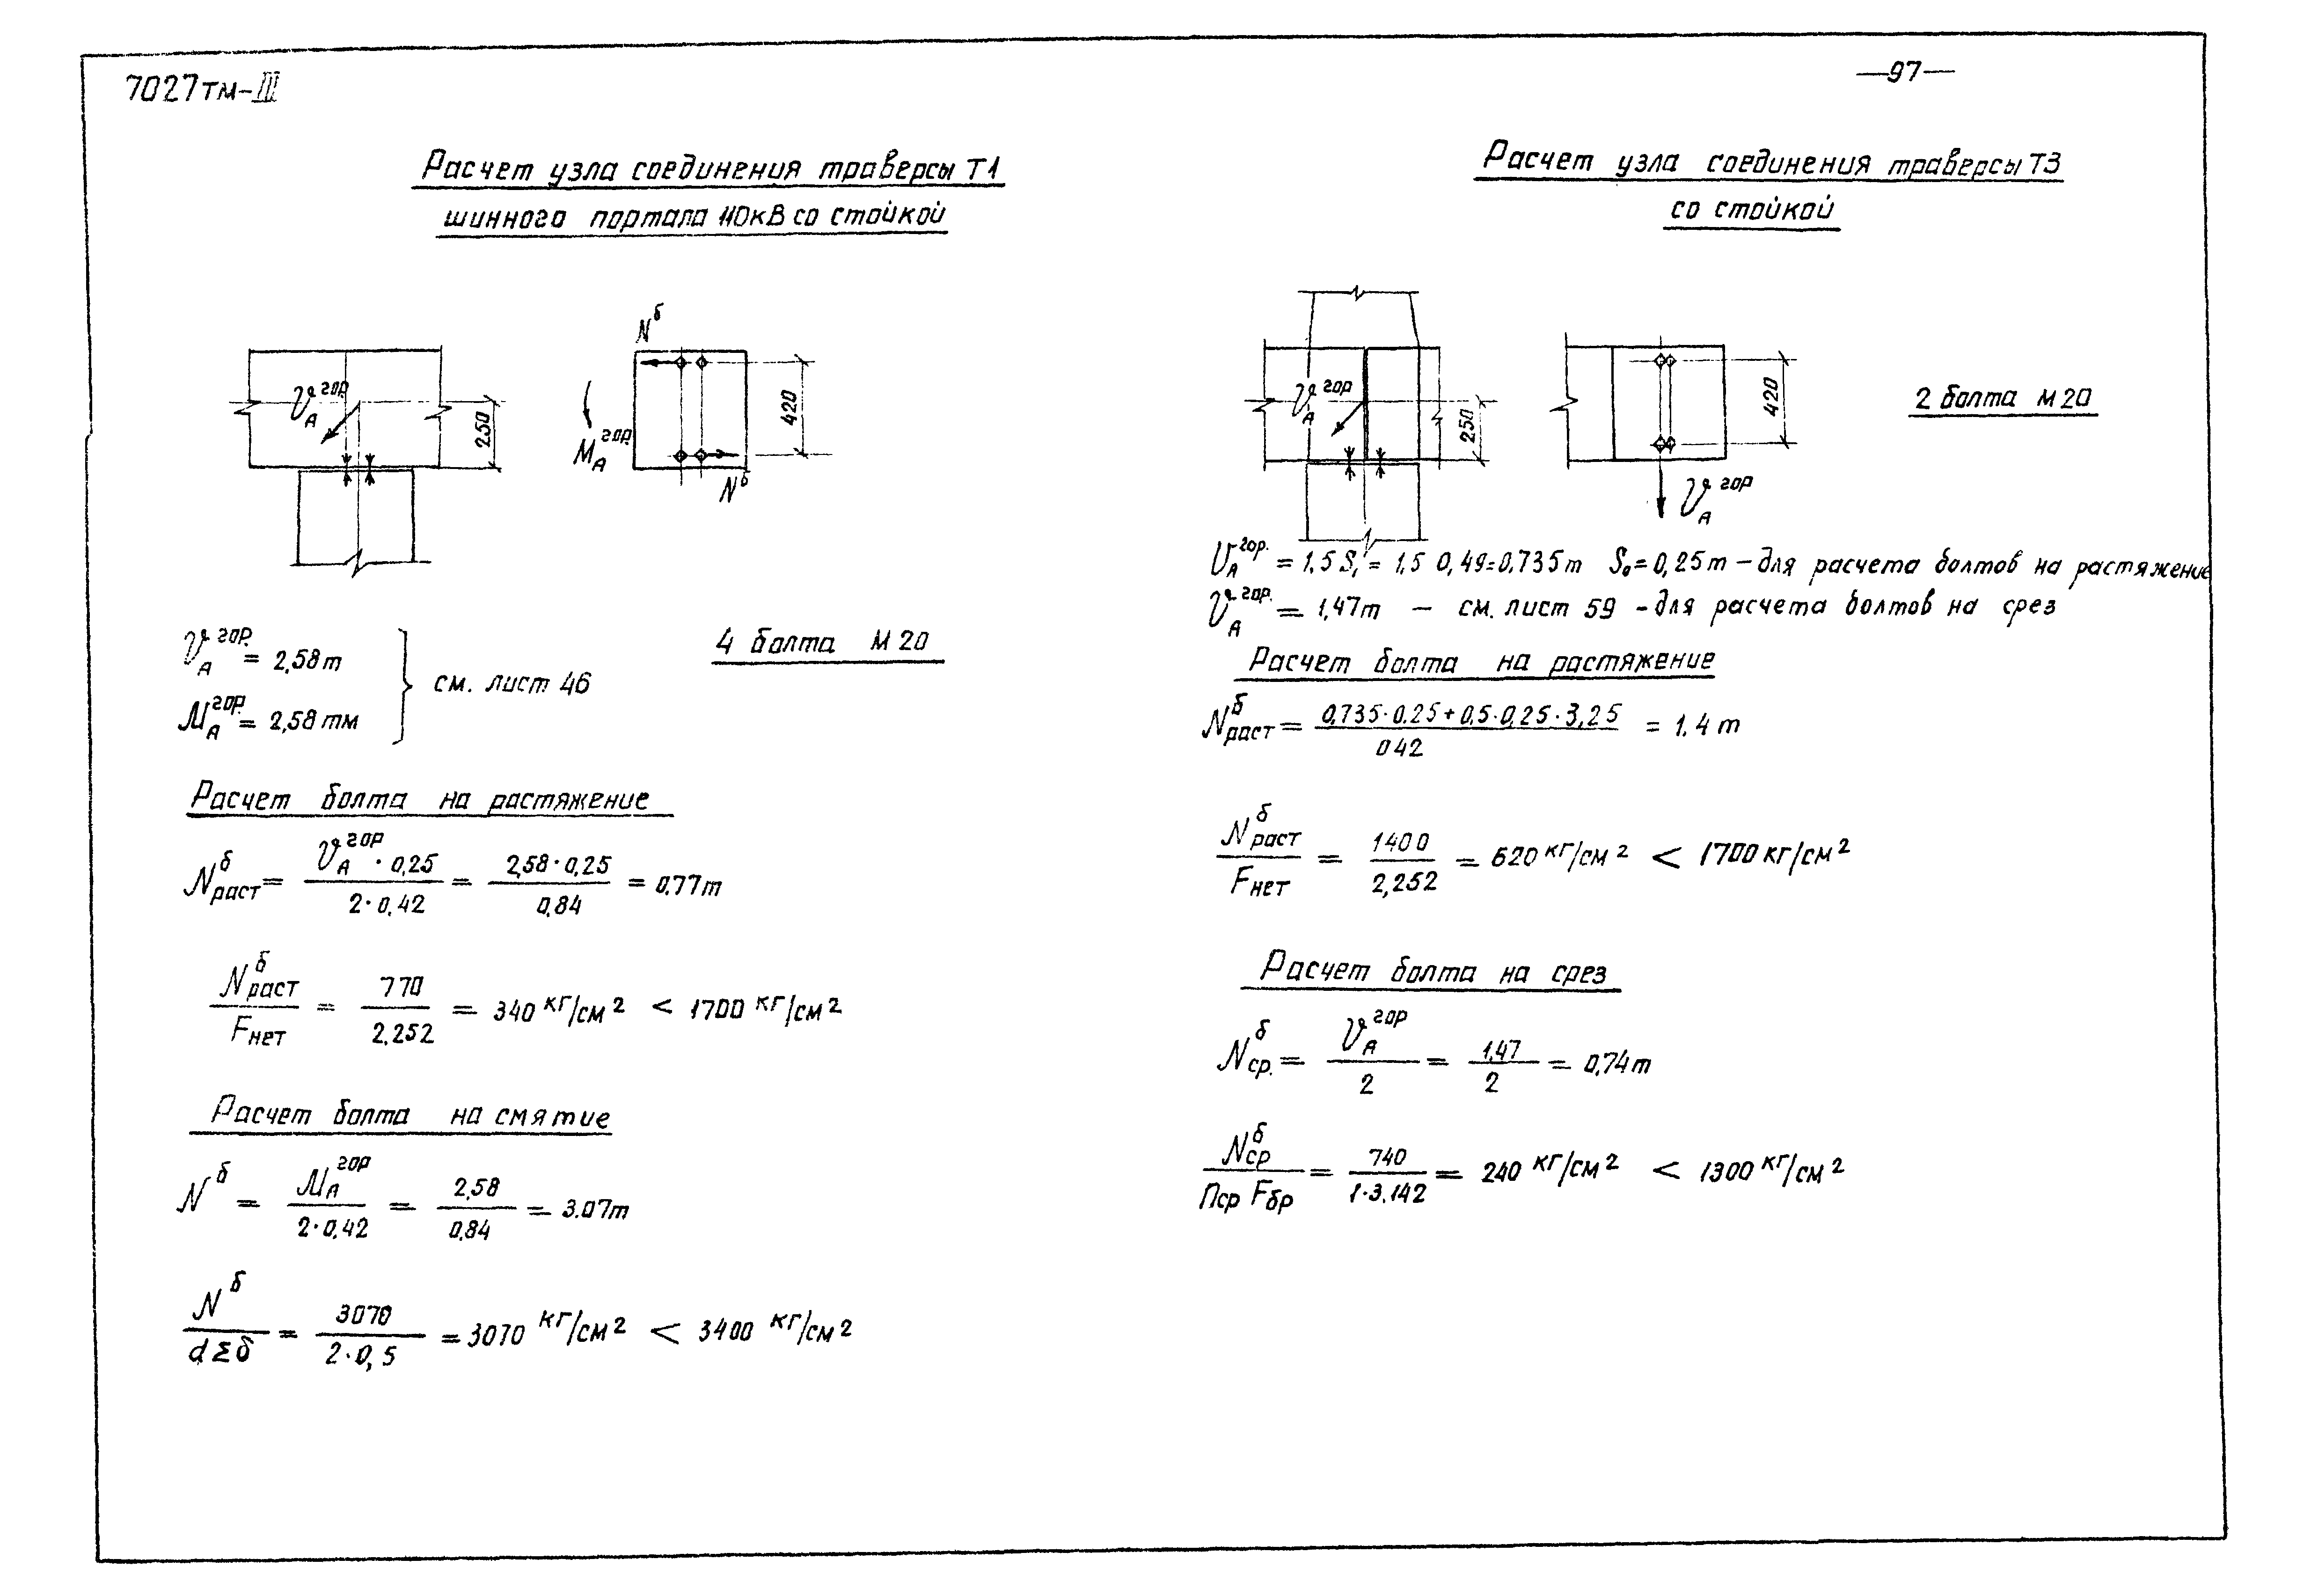 7027тм-III
—97—
Расчет узла соединения траверсы Т1
шинного портала 110кВ со стойкой
V_A^гор.
250
N^б
M_A^гор.
420
N^б
V_A^гор. = 2,58т
M_A^гор. = 2,58тм
см. лист 46
4 болта М20
Расчет болта на растяжение
N^б_раст = V_A^гор · 0,25 / 2·0,42 = 2,58·0,25 / 0,84 = 0,77т
N^б_раст / Fнет = 770 / 2.252 = 340 кг/см² < 1700 кг/см²
Расчет болта на смятие
N^б = M_A^гор / 2·0,42 = 2,58 / 0,84 = 3.07т
N^б / dΣδ = 3070 / 2·0,5 = 3070 кг/см² < 3400 кг/см²
Расчет узла соединения траверсы Т3
со стойкой
V_A^гор
250
420
V_A^гор
2 болта М20
V_A^гор. = 1,5 S₁ = 1,5 0,49=0,735т S₀=0,25т – для расчета болтов на растяжение
V_A^гор. = 1,47т – см. лист 59 – для расчета болтов на срез
Расчет болта на растяжение
N^б_раст = 0,735·0.25+0,5·0,25·3,25 / 042 = 1.4т
N^б_раст / Fнет = 1400 / 2,252 = 620 кг/см² < 1700 кг/см²
Расчет болта на срез
N^б_ср. = V_A^гор / 2 = 1,47 / 2 = 0,74т
N^б_ср / nср Fбр = 740 / 1·3.142 = 240 кг/см² < 1300 кг/см²